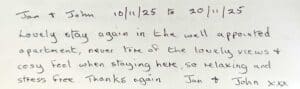 Jan & John 10/11/25 to 20/11/25
Lovely stay again in the well appointed
apartment, never tire of the lovely views &
cosy feel when staying here, so relaxing and
stress free. Thanks again Jan & John xxx